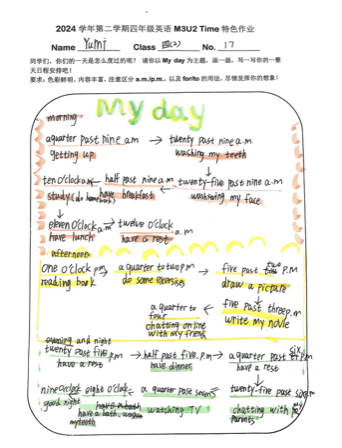 2024 学年第二学期四年级英语 M3U2 Time 特色作业
Name Yumi Class 四(2) No. 17
同学们，你们的一天是怎么度过的呢？ 请你以 My day 为主题，画一画，写一写你的一整
天日程安排吧！
要求：色彩鲜明，内容丰富，注意区分 a.m./p.m.，以及 for/to 的用法，尽情发挥你的想象！
My day
morning
aquarter past nine a.m → twenty past nine a.m
getting up washing my teeth
ten O'clock a.m ← half past nine a.m ← twenty-five past nine a.m
study (do homework) have breakfast washing my face
eleven O'clock a.m → twelve O'clock a.m
have lunch have a rest
afternoon
one O'clock pm → a quarter to two pm → five past two p.m
reading book do some exercises draw a picture
a quarter to four ← five past three p.m
chatting online with my friends write my movie
evening and night
twenty past five p.m → half past five p.m → a quarter past six p.m
have a rest have dinner have a rest
nine O'clock eight O'clock ← a quarter past seven ← twenty-five past six p.m
good night have a bath, watching TV chatting with my parents
my teeth